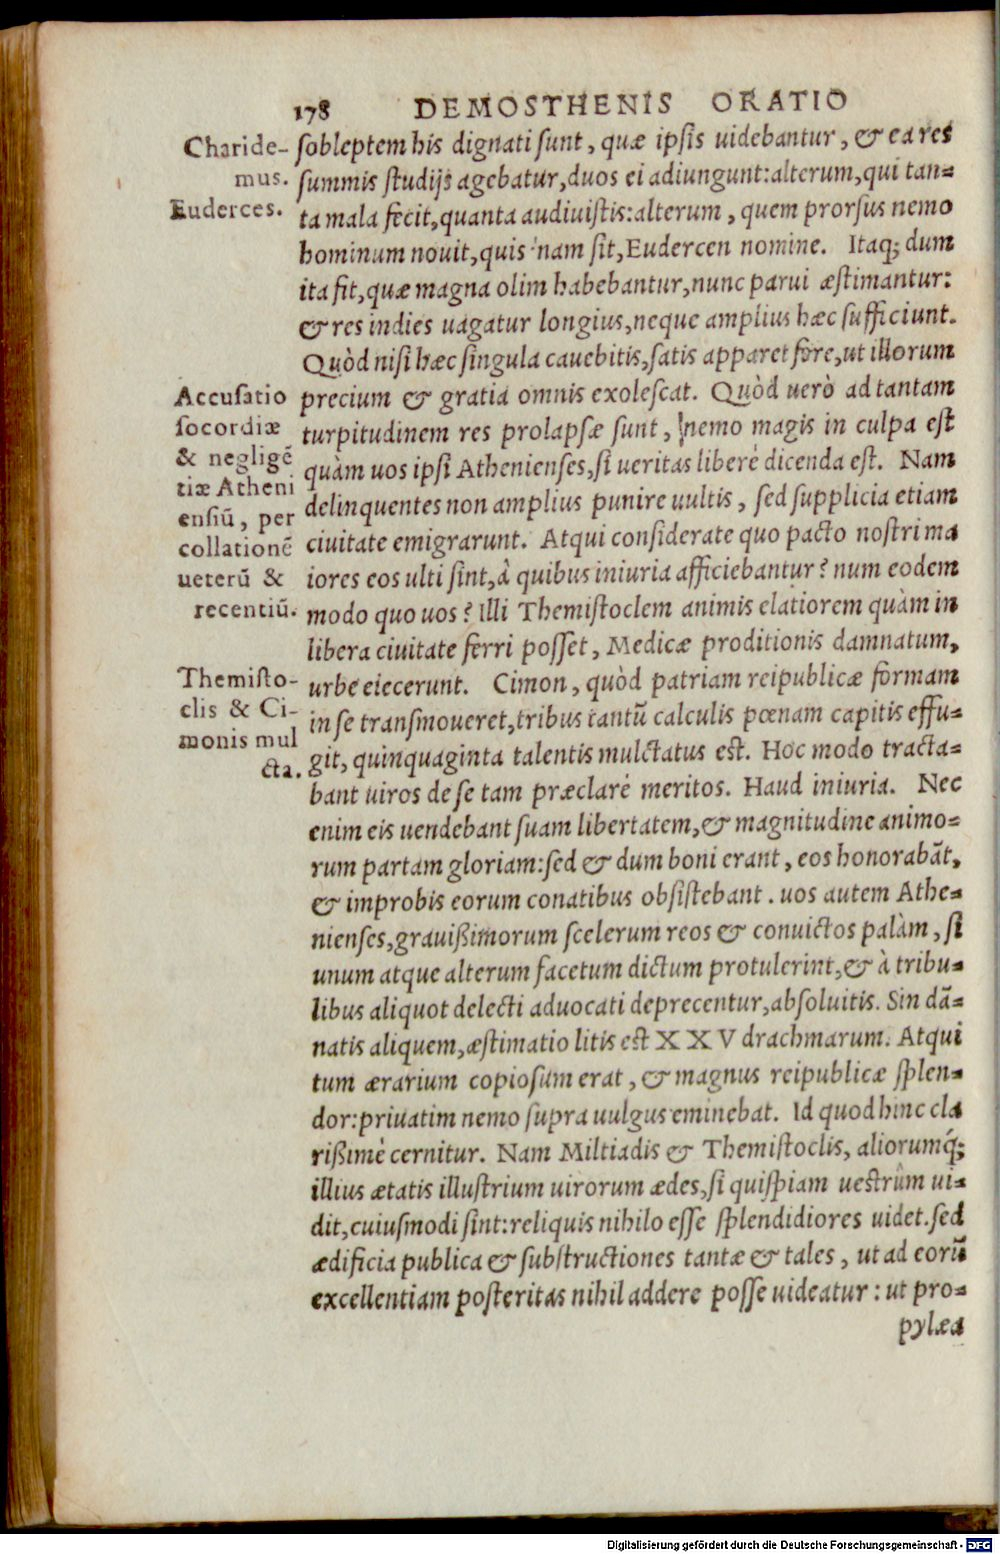 178 DEMOSTHENIS ORATIO
Charide-
mus.
Euderces.
sobleptem his dignati sunt, quæ ipsis uidebantur, & ea res
summis studijs agebatur, duos ei adiungunt: alterum, qui tan-
ta mala fecit, quanta audiuistis: alterum, quem prorsus nemo
hominum nouit, quis nam sit, Eudercen nomine. Itaq; dum
ita fit, quæ magna olim habebantur, nunc parui æstimantur:
& res indies uagatur longius, neque amplius hæc sufficiunt.
Quòd nisi hæc singula cauebitis, satis apparet fore, ut illorum
Accusatio
socordiæ
& negligẽ
tiæ Atheni
ensiũ, per
collationẽ
ueterũ &
recentiũ.
precium & gratia omnis exolescat. Quòd uerò ad tantam
turpitudinem res prolapsæ sunt, nemo magis in culpa est
quàm uos ipsi Athenienses, si ueritas liberè dicenda est. Nam
delinquentes non amplius punire uultis, sed supplicia etiam
ciuitate emigrarunt. Atqui considerate quo pacto nostri ma
iores eos ulti sint, à quibus iniuria afficiebantur? num eodem
modo quo uos? Illi Themistoclem animis elatiorem quàm in
libera ciuitate ferri posset, Medicæ proditionis damnatum,
Themisto-
clis & Ci-
monis mul
cta.
urbe eiecerunt. Cimon, quòd patriam reipublicæ formam
in se transmoueret, tribus tantũ calculis pœnam capitis effu-
git, quinquaginta talentis mulctatus est. Hoc modo tracta-
bant uiros de se tam præclarè meritos. Haud iniuria. Nec
enim eis uendebant suam libertatem, & magnitudine animo-
rum partam gloriam: sed & dum boni erant, eos honorabãt,
& improbis eorum conatibus obsistebant. uos autem Athe-
nienses, grauißimorum scelerum reos & conuictos palàm, si
unum atque alterum facetum dictum protulerint, & à tribu-
libus aliquot delecti aduocati deprecentur, absoluitis. Sin dã-
natis aliquem, æstimatio litis est XXV drachmarum. Atqui
tum ærarium copiosum erat, & magnus reipublicæ splen-
dor: priuatim nemo supra uulgus eminebat. Id quod hinc cla
rißimè cernitur. Nam Miltiadis & Themistoclis, aliorumq́;
illius ætatis illustrium uirorum ædes, si quispiam uestrûm ui-
dit, cuiusmodi sint: reliquis nihilo esse splendidiores uidet. sed
ædificia publica & substructiones tantæ & tales, ut ad eorũ
excellentiam posteritas nihil addere posse uideatur: ut pro-
pylæa
Digitalisierung gefördert durch die Deutsche Forschungsgemeinschaft - DFG